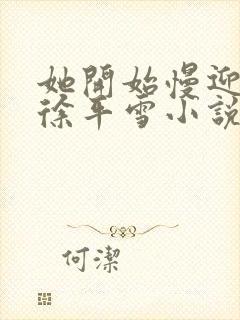 她開始慢迎
徐平雪小說
何潔